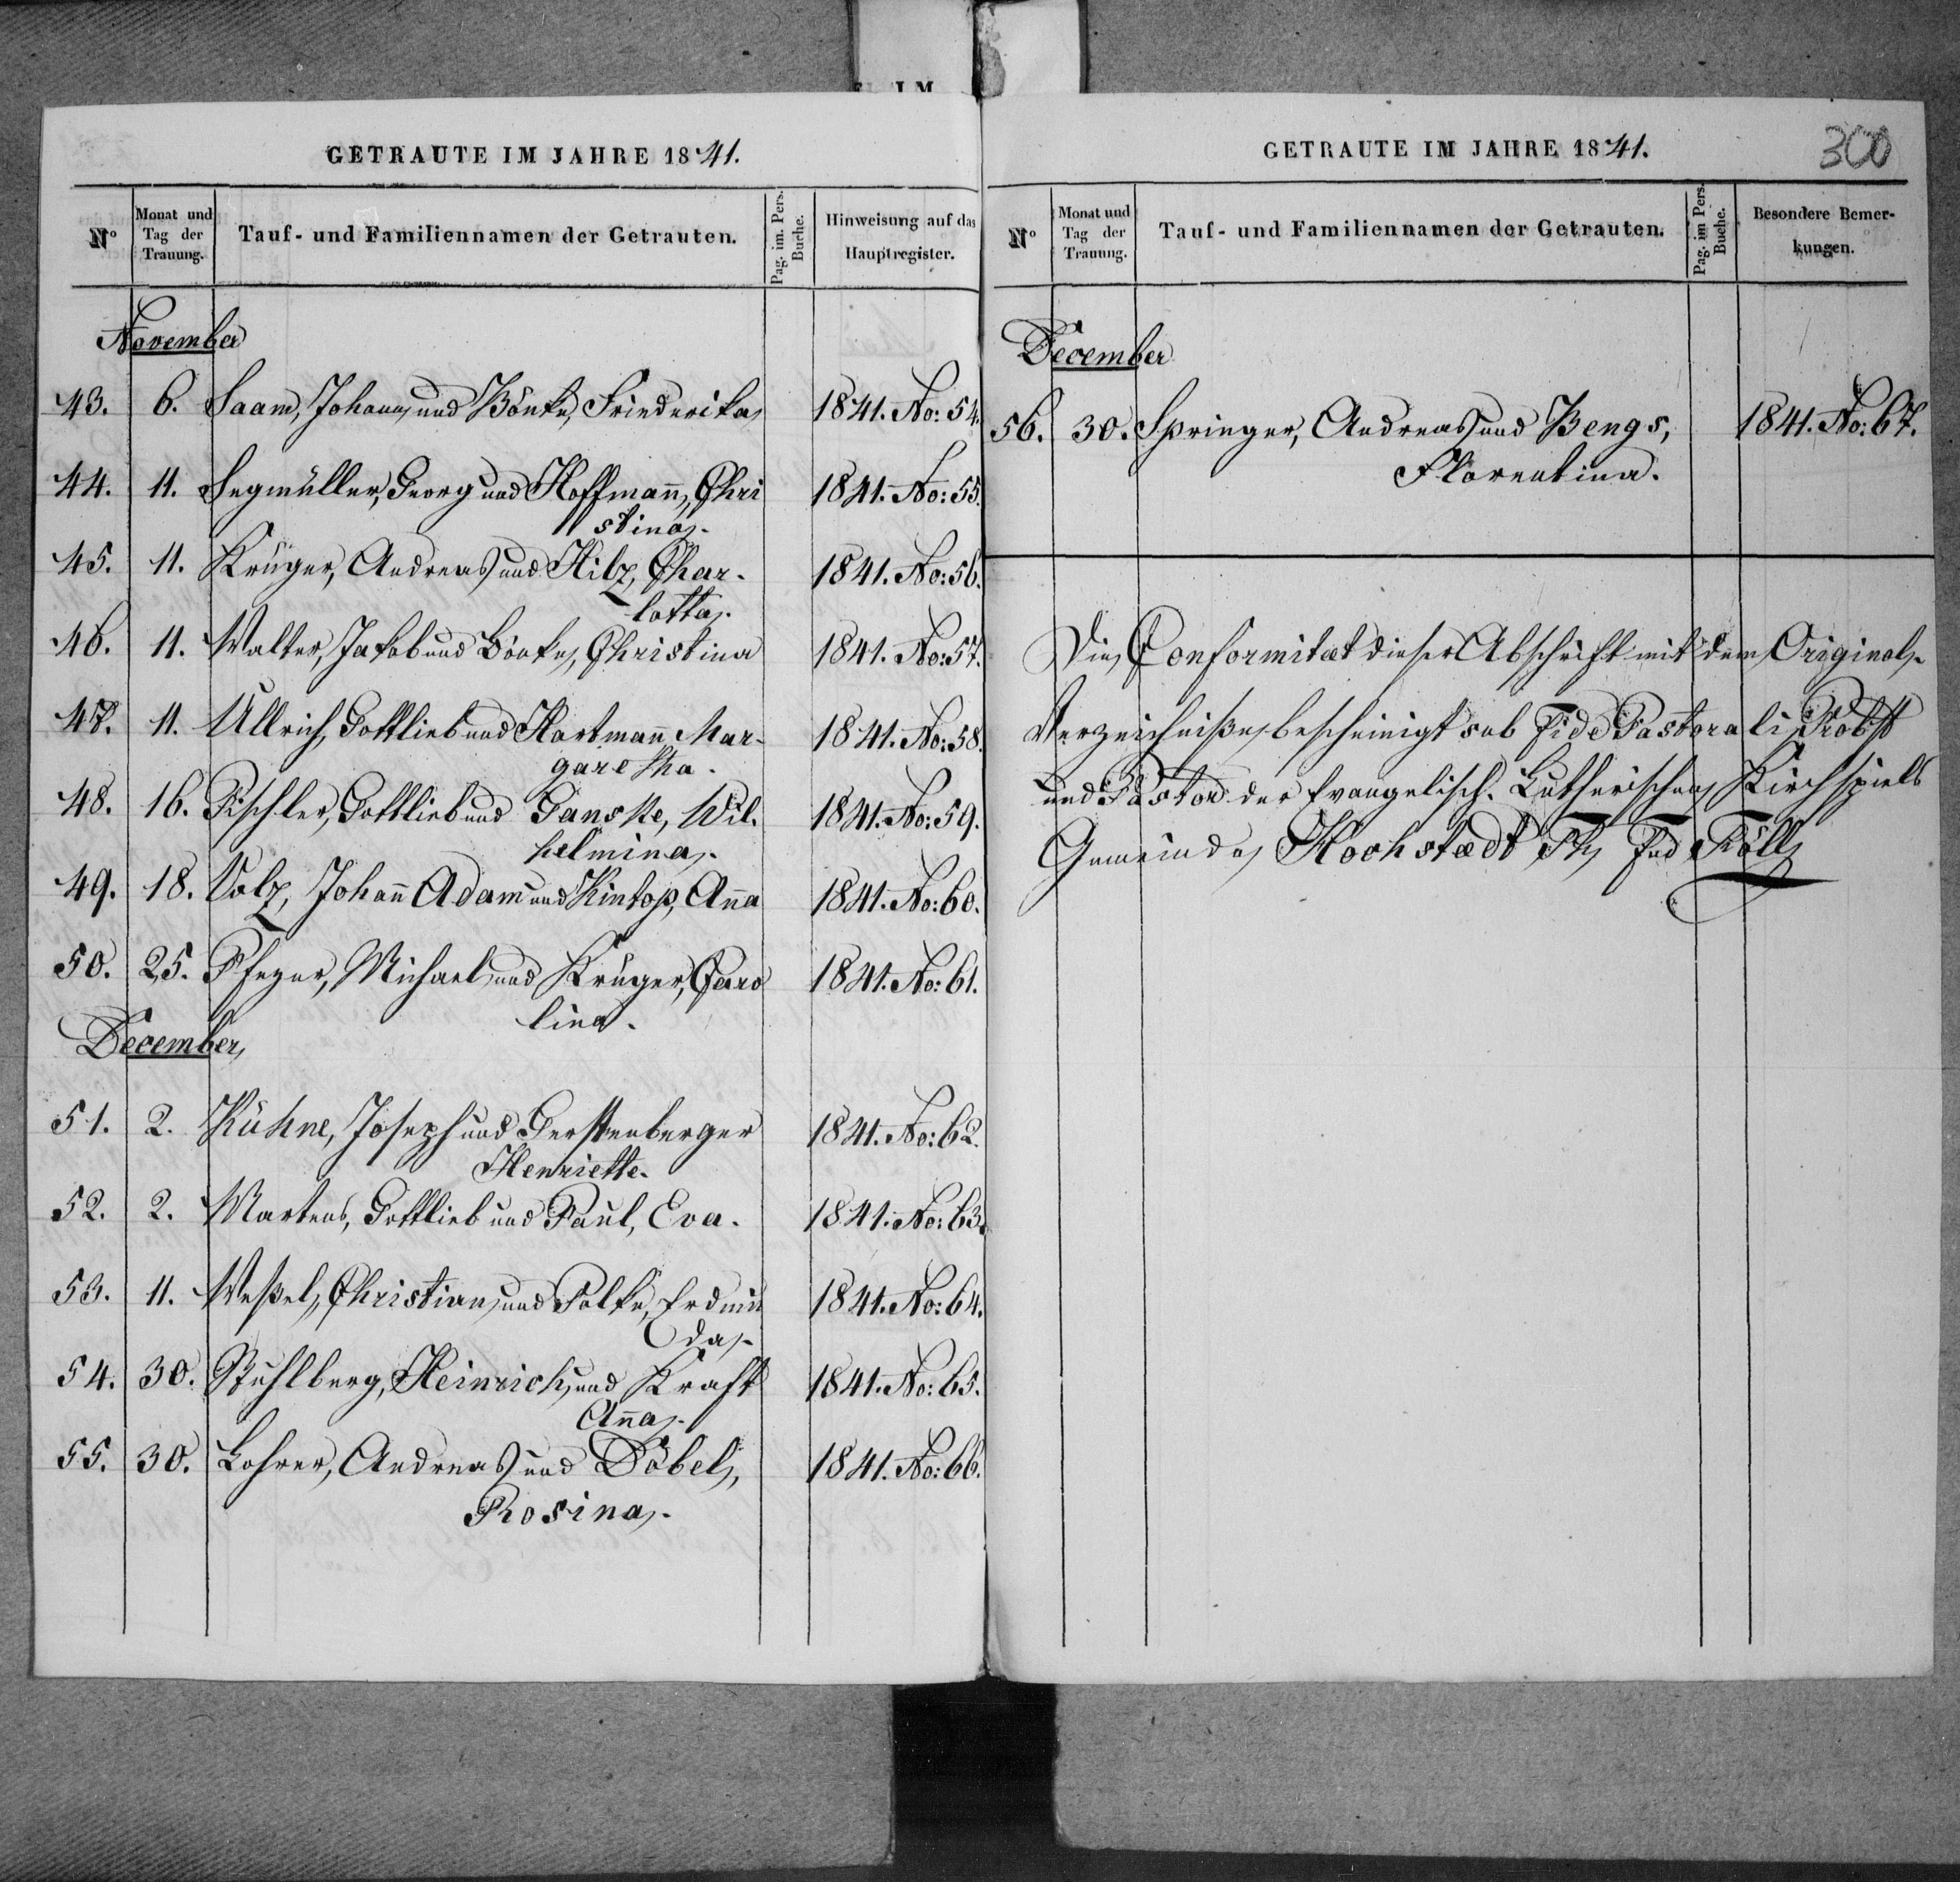 E IM
GETRAUTE IM JAHRE 1841.
No
Monat und Tag der Trauung.
Tauf- und Familiennamen der Getrauten.
Pag. im. Pers. Buche.
Hinweisung auf das Hauptregister.
November
43. 6. Saam, Johann und Bönke, Friederika 1841. No: 54.
44. 11. Segmüller, Georg und Hoffmann, Chri 1841. No: 55.
stina.
45. 11. Krüger, Andreas und Hilz, Char- 1841. No: 56.
lotta.
46. 11. Walter, Jakob und Bönke, Christina 1841. No: 57.
47. 11. Ullrich, Gottlieb und Hartmann Mar- 1841. No: 58.
garetha.
48. 16. Fischler, Gottlieb und Ganske, Wil- 1841. No: 59.
helmina.
49. 18. Volz, Johann Adam und Kintop, Anna 1841. No: 60.
50. 25. Pfezer, Michael und Krüger, Caro 1841. No: 61.
lina.
December
51. 2. Kühne, Joseph und Gerstenberger 1841. No: 62.
Henriette.
52. 2. Martens, Gottlieb und Paul, Eva. 1841. No: 63.
53. 11. Weßel, Christian und Polke, Erdmu 1841. No: 64.
da.
54. 30. Stuhlberg, Heinrich und Kraft 1841. No: 65.
Anna.
55. 30. Lohrer, Andreas und Döbel, 1841. No: 66.
Rosina.
GETRAUTE IM JAHRE 1841.
300
No
Monat und Tag der Trauung.
Tauf- und Familiennamen der Getrauten.
Pag. im Pers. Buche.
Besondere Bemerkungen.
December
56. 30. Springer, Andreas und Bengs, 1841. No: 67.
Florentina.
Die Conformitæt dieser Abschrift mit dem Original-
Verzeichniße bescheinigt sub fide Pastorali Probst
und Pastor der Evangelisch-Lutherischen Kirchspiels
Gemeinde Hochstædt Föll